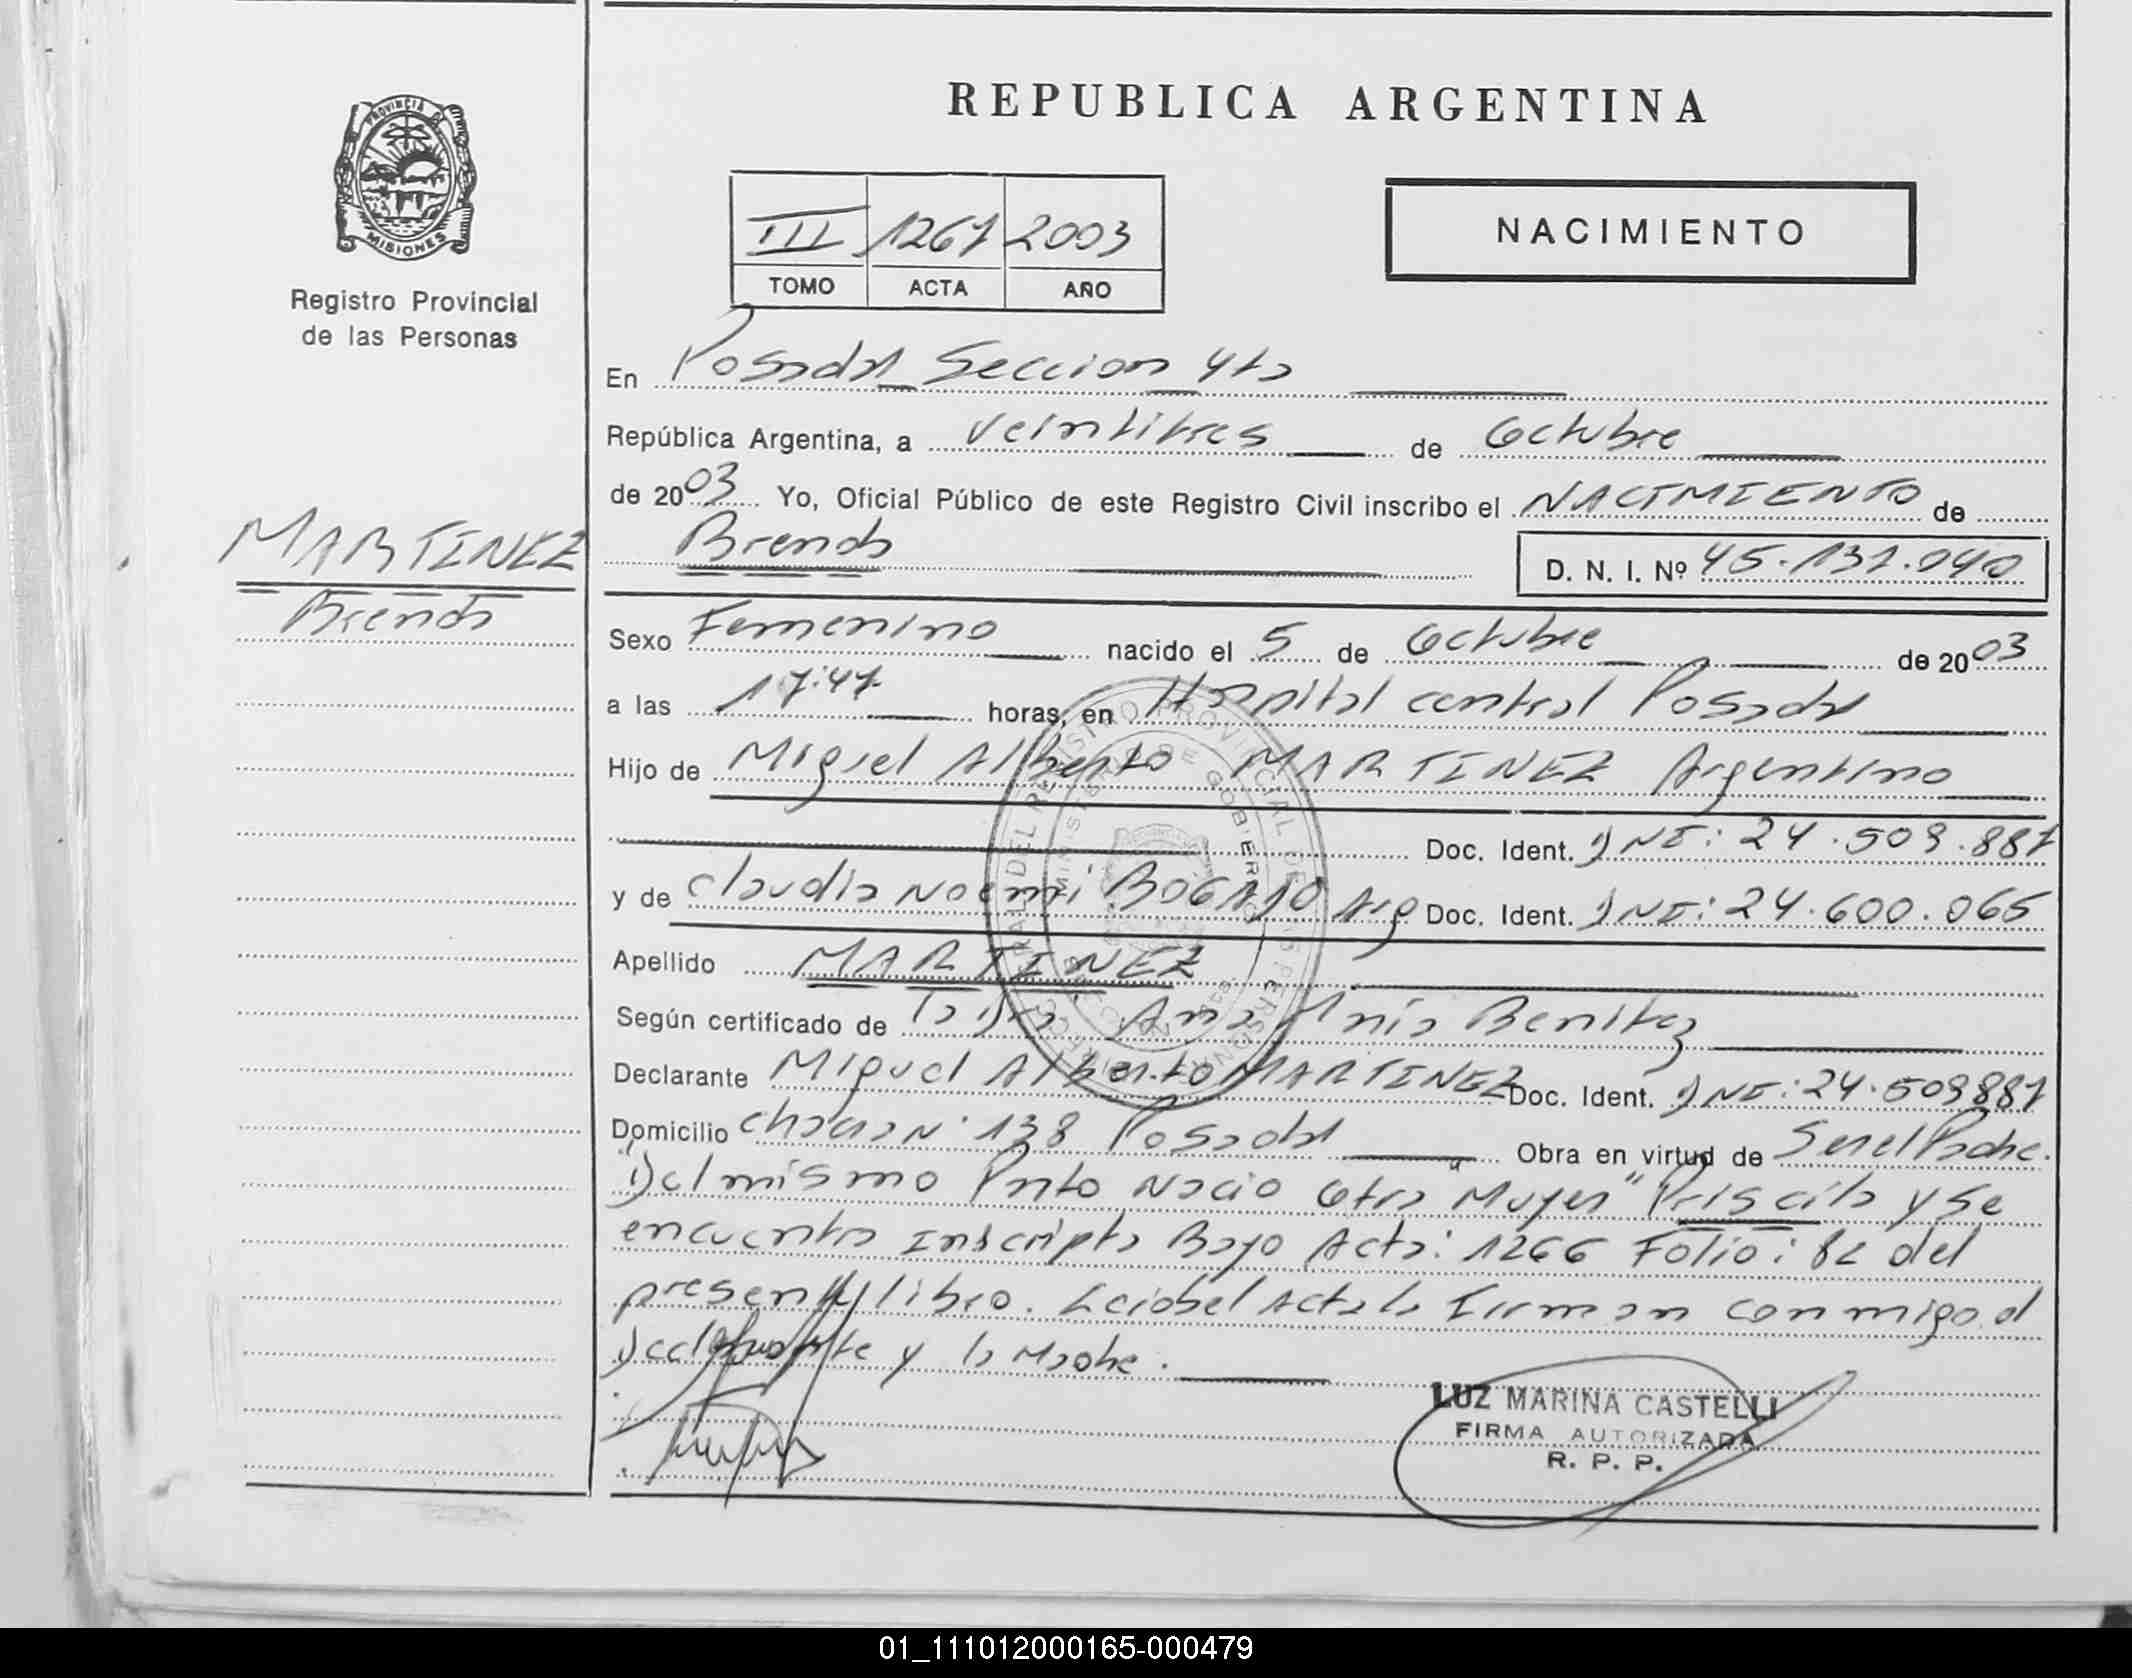 REPUBLICA ARGENTINA
PROVINCIA DE
MISIONES
Registro Provincial
de las Personas
III 1267 2003
TOMO ACTA AÑO
NACIMIENTO
En Posadas Seccion 4ta
República Argentina, a Veintitres de Octubre
de 2003 Yo, Oficial Público de este Registro Civil inscribo el NACIMIENTO de
MARTINEZ
Brenda
Brenda D. N. I. Nº 45.131.040
Sexo Femenino nacido el 5 de Octubre de 2003
a las 17:47 horas, en Hospital central Posadas
Hijo de Miguel Alberto MARTINEZ Argentino
Doc. Ident. DNI: 24.509.887
y de Claudia Noemi BOGADO Arg Doc. Ident. DNI: 24.600.065
Apellido MARTINEZ
Según certificado de la Dra Ana Benitez
Declarante Miguel Alberto MARTINEZ Doc. Ident. DNI: 24.509887
Domicilio Chacra N° 138 Posadas Obra en virtud de Ser el Padre.
Del mismo Parto Nacio Otra Mujer "Priscila y se
encuentra Inscripta Bajo Acta: 1266 Folio: 82 del
presente libro. Leida el Acta la Firman conmigo el
Declarante y la Madre.
LUZ MARINA CASTELLI
FIRMA AUTORIZADA
R. P. P.
01_111012000165-000479